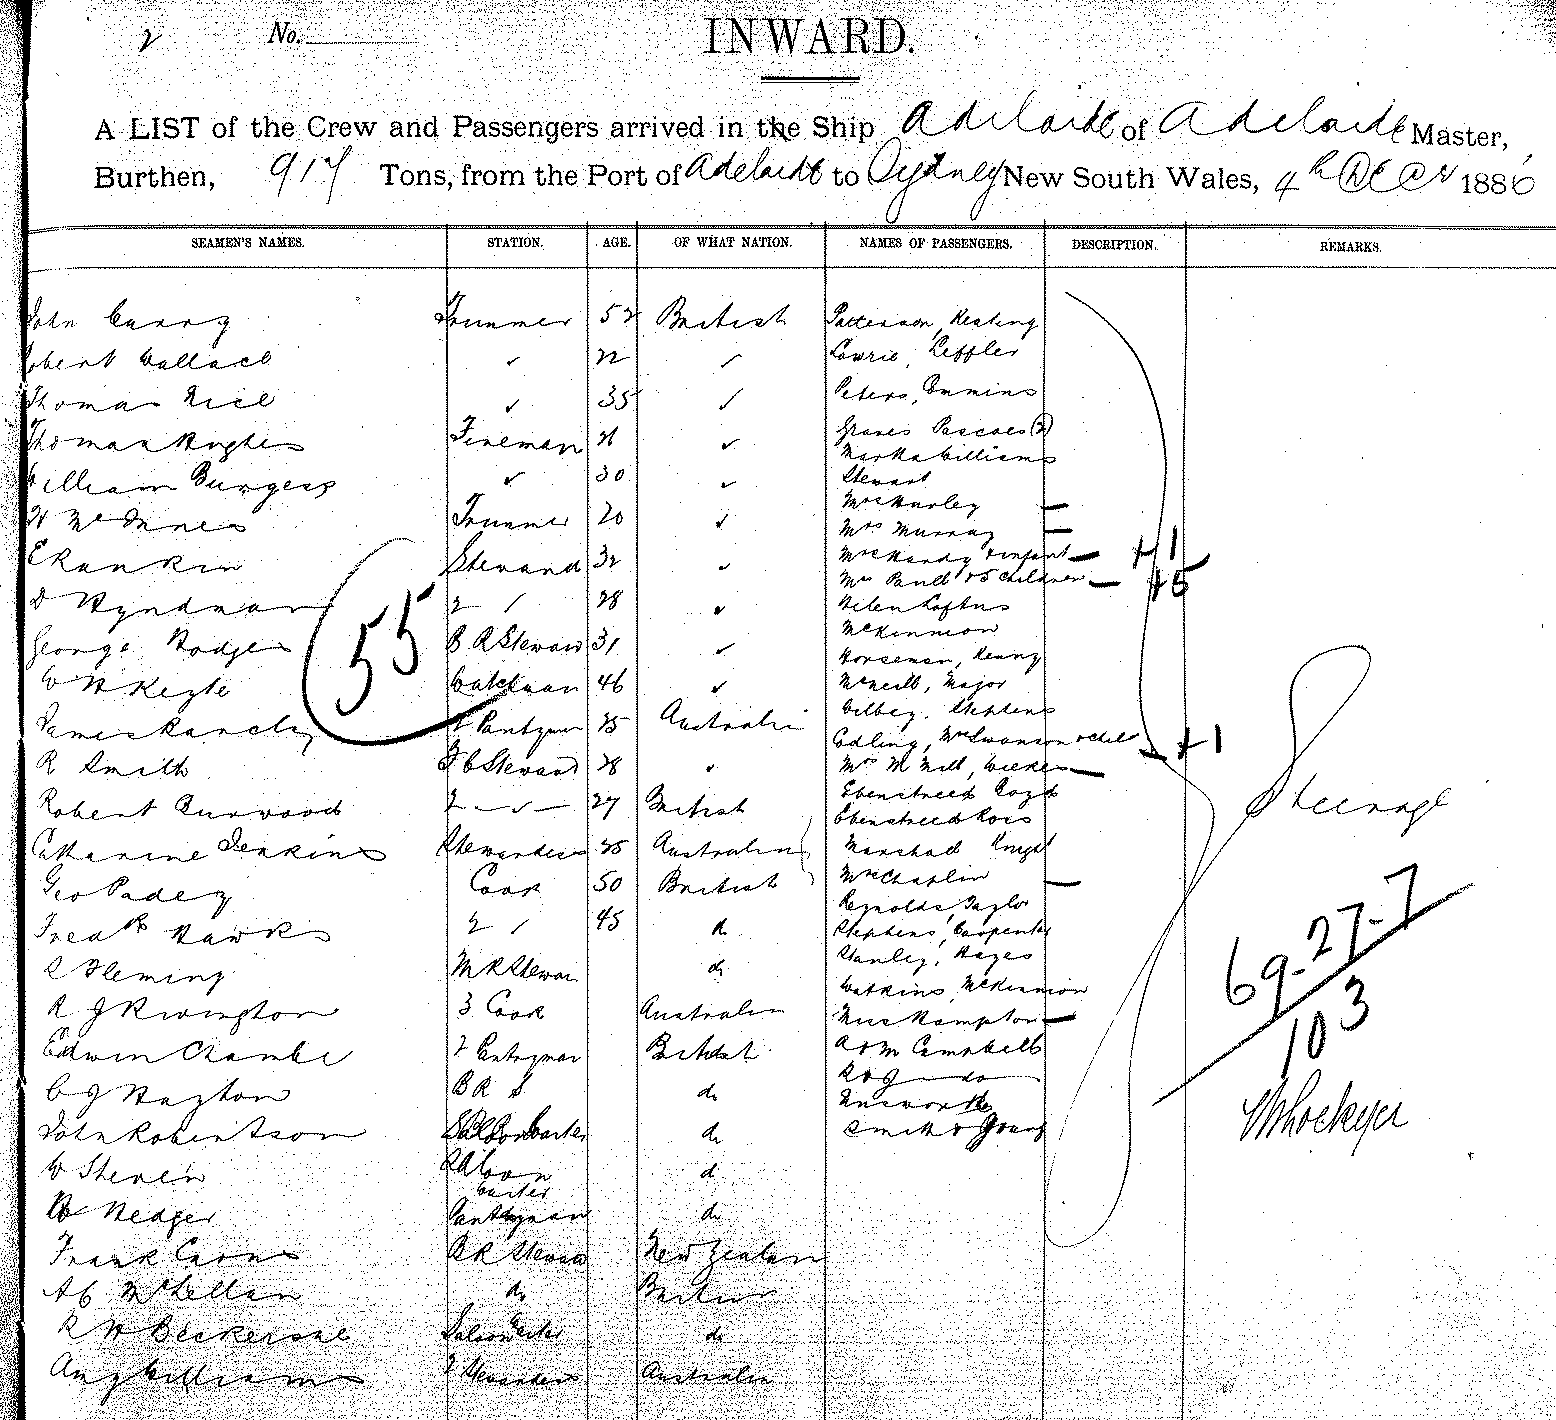 2 No.
INWARD.
A LIST of the Crew and Passengers arrived in the Ship Adelaide of Adelaide Master,
Burthen, 917 Tons, from the Port of Adelaide to Sydney New South Wales, 4th Decr 1886
SEAMEN'S NAMES. STATION. AGE. OF WHAT NATION. NAMES OF PASSENGERS. DESCRIPTION. REMARKS.
John Curry Trimmer 52 British Patterson, Keating
Robert Wallace ✓ 22 ✓ Lowrie, Leffler
Thomas Nice ✓ 35 ✓ Peters,
Thomas Hughes Fireman 21 ✓ Graves Pascoes (2)
William Burgess ✓ 30 ✓ Marks Williams
Stewart
H McInnes Trimmer 20 ✓ Mrs Hurley —
Mrs Murray —
E Rankin Steward 32 ✓ Mrs Hardy & infant — +1
Mrs Bull & 5 children — +5
D Hyndman 2 ✓ 28 ✓ Helen Loftus
McKinnion
George Hodges B R Steward 31 ✓ Horseman, Kenny
55
W H Keyte Watchman 46 ✓ McNeill, Major
James Rancley 2 Pantryman 25 Australia Wilbey, Stephens
Codling, Mrs Swanson & child — +1
R Smith F C Steward 28 ✓ Mrs M Neil, Wilkes —
Robert Burwood 2 — ✓ — 27 British Ebenstreed Boyd
Ebenstreed Ross
Steerage
Catharine Jenkins Stewardess 25 Australian Marshall Knight
Geo Padey Cook 50 British Mrs Chaplin —
Reynolds, Taylor
Fredk Hawks 2 ✓ 45 do Stephens, Carpenter
R Fleming M R Stewar do Stanley, Hayes
69-27-7
103
Watkins, McKinnion
R J Rivington 3 Cook Australia Miss Hampton —
Edwin Chambe 2 Pantryman British A & M Campbell
R & J do
C J Hayton B R S do Unsworth
John Robertson Saloon Waiter do Smith & Young
W Steven Saloon Waiter do
W Hedger Pantryman do
Frank Carns B R Steward New Zealan
A C McLellan do British
R H Beckersal Saloon Waiter do
Amy Williams 2 Stewardess Australia